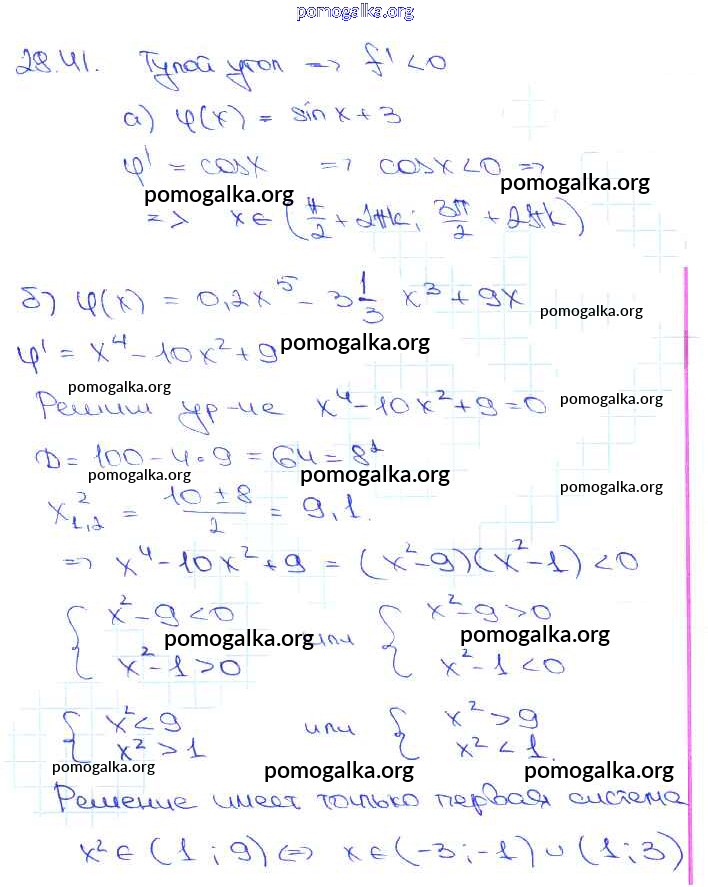 pomogalka.org
28.41. Тупой угол => f' < 0
а) φ(x) = sin x + 3
φ' = cos x => cos x < 0 =>
pomogalka.org pomogalka.org
=> x ∈ (π/2 + 2πk; 3π/2 + 2πk)
б) φ(x) = 0,2x⁵ - 3 1/3 x³ + 9x
pomogalka.org
φ' = x⁴ - 10x² + 9 pomogalka.org
pomogalka.org
Решим ур-ие x⁴ - 10x² + 9 = 0 pomogalka.org
D = 100 - 4 • 9 = 64 = 8²
pomogalka.org pomogalka.org pomogalka.org
x²₁,₂ = (10 ± 8)/2 = 9, 1.
=> x⁴ - 10x² + 9 = (x² - 9)(x² - 1) < 0
{ x² - 9 < 0 или { x² - 9 > 0
pomogalka.org pomogalka.org
x² - 1 > 0 x² - 1 < 0
{ x² < 9 или { x² > 9
x² > 1 x² < 1.
pomogalka.org pomogalka.org pomogalka.org
Решение имеет только первая система
x² ∈ (1; 9) <=> x ∈ (-3; -1) ∪ (1; 3)